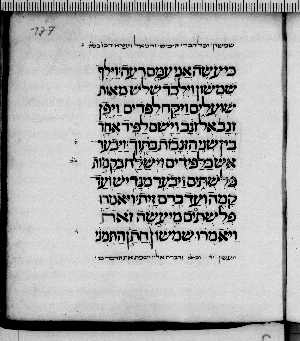 177
כי עשה אני עמם רעה וילך
שמשון וילכד שלש מאות
שועלים ויקח לפדים ויפן
זנב אל זנב וישם לפיד אחד
בין שני הזנבות בתוך ויבער
אש בלפידים וישלח בקמות
פלשתים ויבער מגדיש ועד
קמה ועד כרם זית ויאמרו
פלשתים מי עשה זאת
ויאמרו שמשון חתן התמני